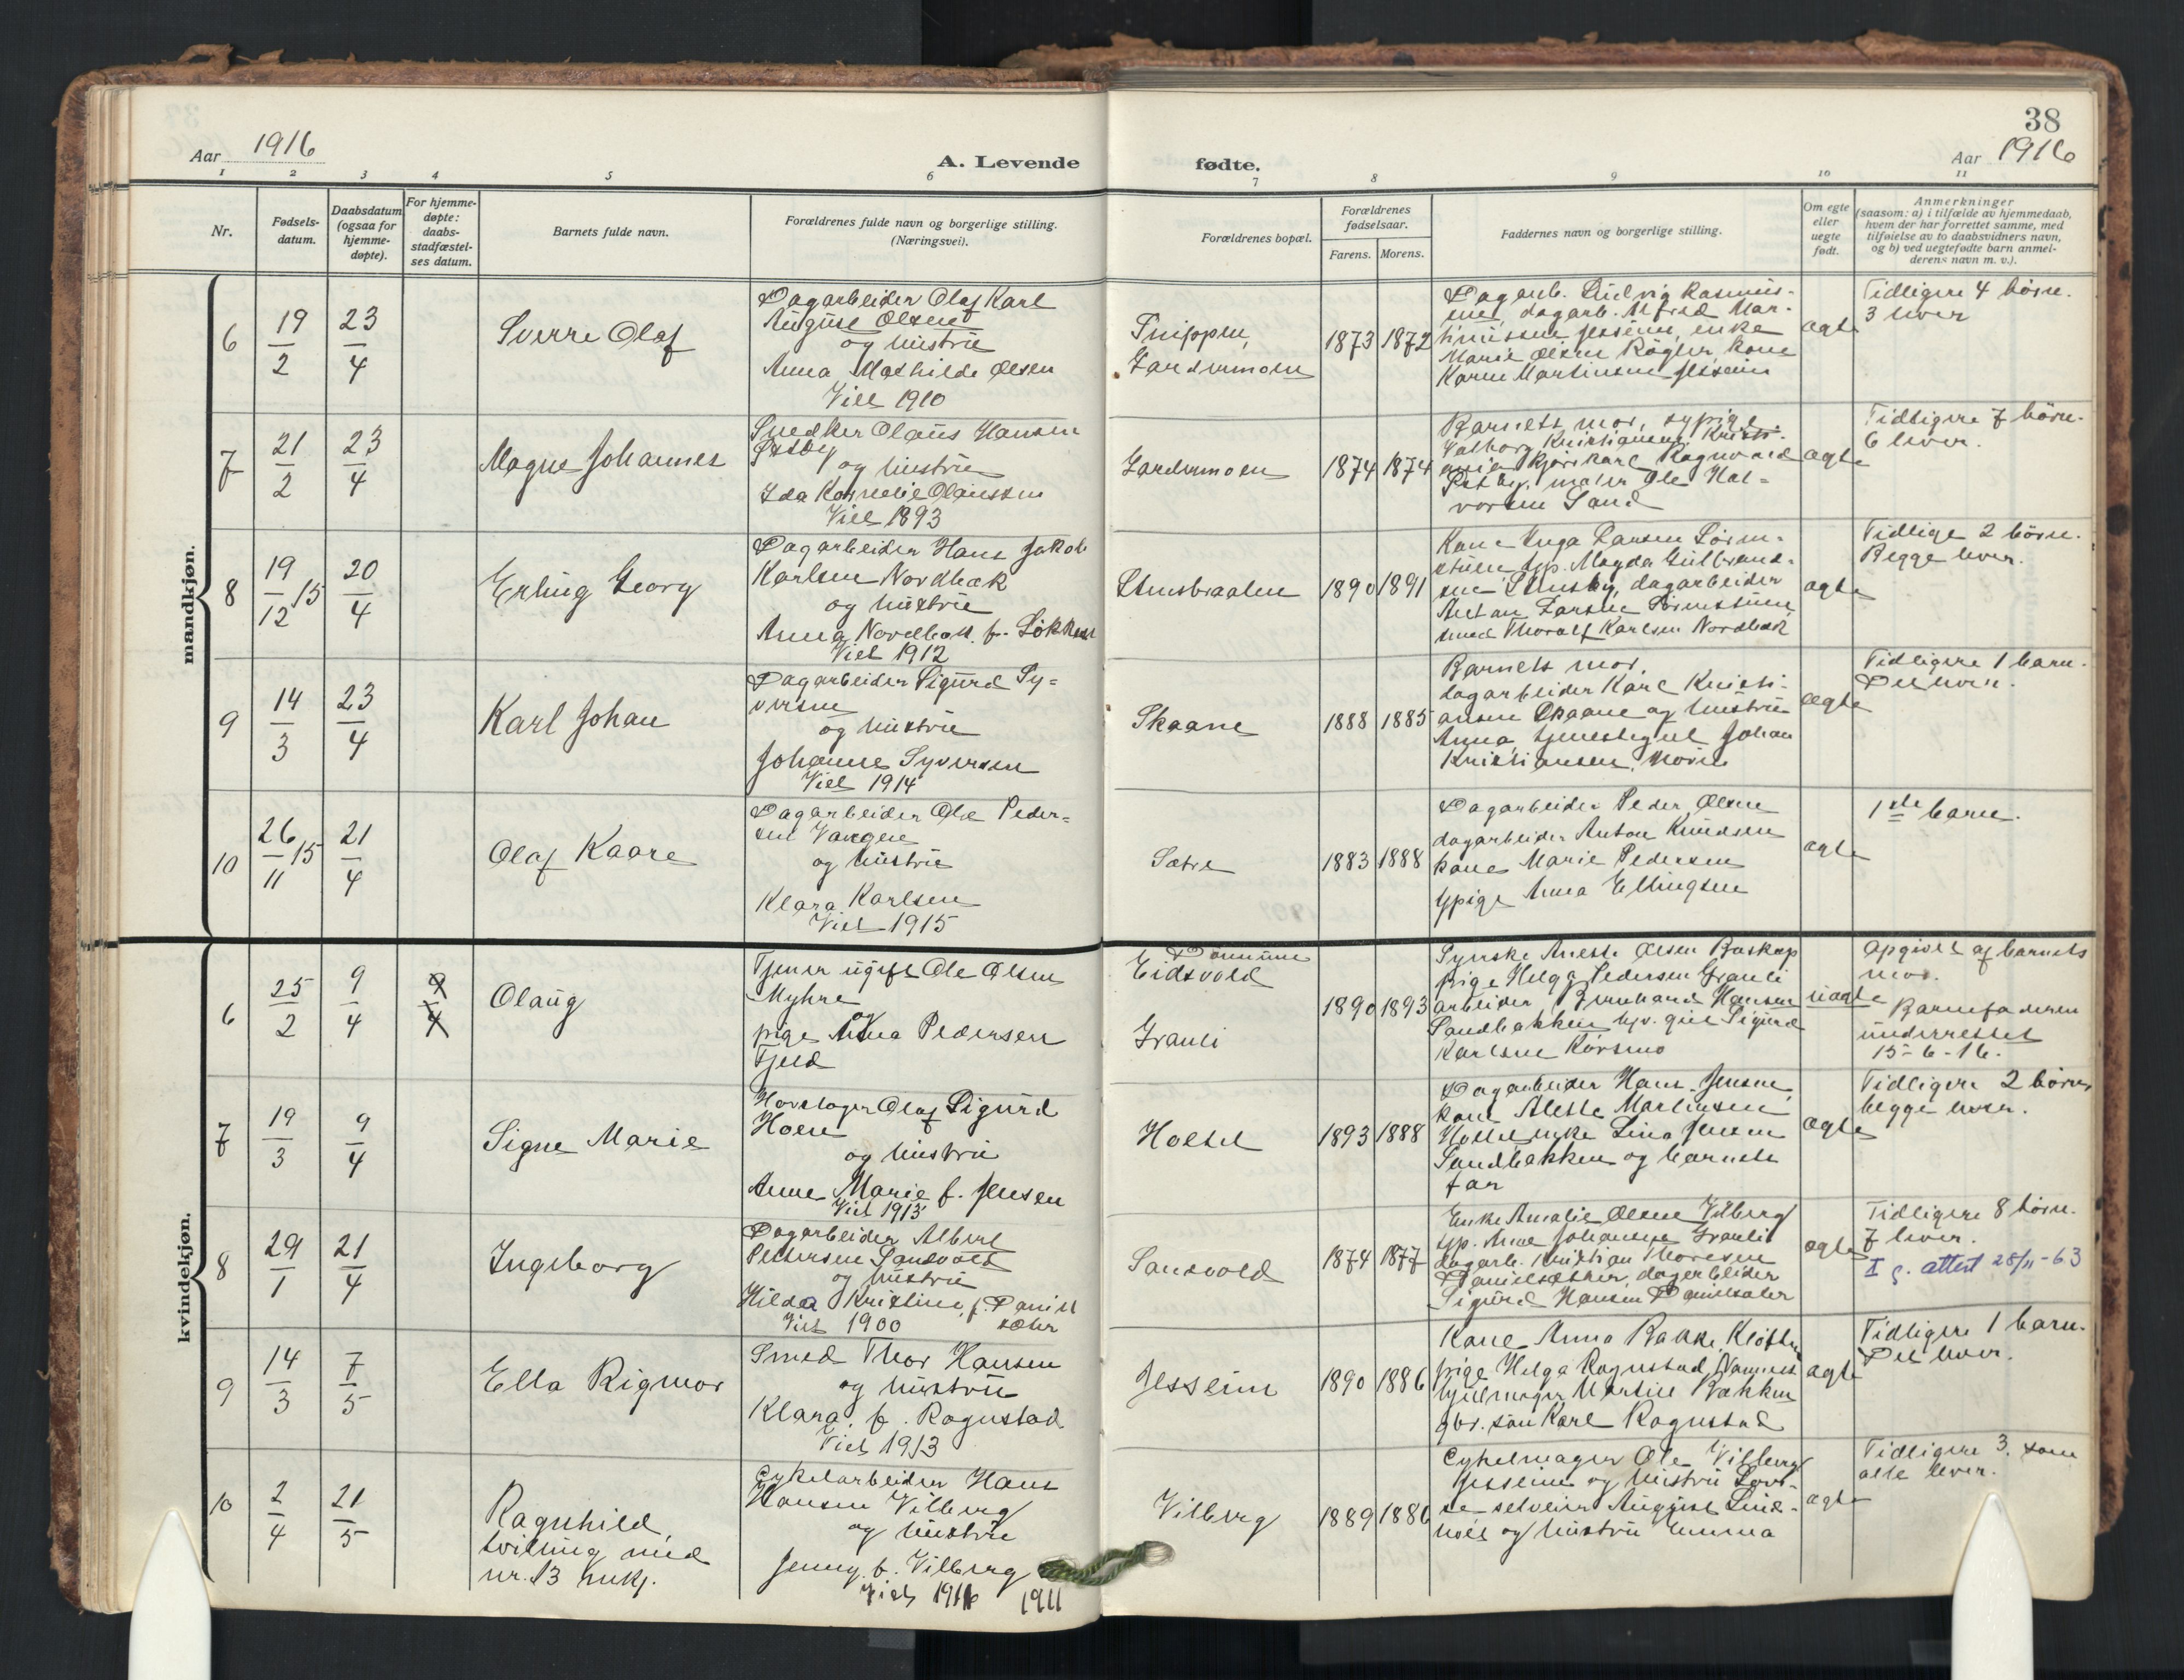 38
Aar 1916
A. Levende
fødte.
Aar 1916
1 2 3 4 5 6 7 8 9 10 11
Nr.
Fødsels-
datum.
Daabsdatum
(ogsaa for
hjemme-
døpte).
For hjemme-
døpte:
daabs-
stadfæstel-
ses datum.
Barnets fulde navn.
Forældrenes fulde navn og borgerlige stilling.
(Næringsvei).
Forældrenes bopæl.
Forældrenes
fødselsaar.
Farens. Morens.
Faddernes navn og borgerlige stilling.
Om egte
eller
uegte
født.
Anmerkninger
(saasom: a) i tilfælde av hjemmedaab,
hvem der har forrettet samme, med
tilføielse av to daabsvidners navn,
og b) ved uegtefødte barn anmel-
derens navn m. v.).
mandkjøn.
6
19/2
23/4
Sverre Olaf
Dagarbeider Olaf Karl
August Olsen
og hustru
Anna Mathilde Olsen
Viet 1910
Gardermoen
1873 1872
Dagarb. Ludvig Rasmus-
sen, dagarb. Alfred Mar-
tinussen Jesseim, enke
Marie Olsen Rögler, kone
Karen Martinsen Jesseim
ægte
Tidligere 4 börn.
3 lever
7
21/2
23/4
Magne Johannes
Snedker Olaus Hansen
Østby
og hustru
Ida Kornelie Olaussen
Viet 1893
Gardermoen
1874 1874
Barnets mor, sypige
Valborg Kristiansen, Kristi-
ania, kjörekarl Ragnvald
Østby, maler Ole Hal-
vorsen Sand
ægte
Tidligere 7 börn.
6 lever.
8
19/12 15
20/4
Erling Georg
Dagarbeider Hans Jakob
Karlsen Nordbæk
og hustru
Anna Nordbæk f. Løkken
Viet 1912
Stensbraaten
1890 1891
Kone Inga Larsen
Magda Gulbrand-
sen Stensby, dagarbeider
Anton Larsen
smed Thoralf Karlsen Nordbæk
ægte
Tidlige 2 börn.
Begge lever.
9
14/3
23/4
Karl Johan
Dagarbeider Sigurd Sy-
versen
og hustru
Johanne Syversen
Viet 1914
Skaane
1888 1885
Barnets mor,
dagarbeider Karl Kristi-
ansen Skaane og hustru
Anna, tjenestegut Johan
Kristiansen, Horn
ægte
Tidligere 1 barn.
Det lever.
10
26/11 15
21/4
Olaf Kaare
Dagarbeider Ole Peder-
sen Vangen
og hustru
Klara Karlsen
Viet 1915
Sætre
1883 1888
Dagarbeider Peder Olsen
dagarbeider Anton Knudsen
kone Marie Pedersen
pige Anna Ellingsen
ægte
1ste barn.
kvindekjøn.
6
25/2
9/4
9/4
Olaug
Tjener ugift Ole Olsen
Myhre
og
pige Anna Pedersen
Fjeld
Eidsvold
Grauli
1890 1893
Anette Olsen Baskop
pige Helga Pedersen Grauli
arbeider Bernhard Hansen
Sandbakken, gut Sigurd
Karlsen Korsmo
uægte
Opgivet af barnets
mor.
Barnefaderen
underrettet
15-6-16.
7
19/3
9/4
Signe Marie
Hovslager Olaf Sigurd
Holen
og hustru
Anne Marie f. Jensen
Viet 1913
Holtet
1893 1888
Dagarbeider Hans Jensen,
kone Alette Martinsen
Holtet, enke Lina Jensen
Sandbakken og barnets
far
ægte
Tidligere 2 börn,
begge lever.
8
29/1
21/4
Ingeborg
Dagarbeider Albert
Pettersen Sandvold
og hustru
Hilda Kristine f. Daniel
sæter
Viet 1900
Sandvold
1874 1877
Enke Amalie Olsen Vilberg
Johansen Grauli
dagarb. Kristian Thoresen
Danielsæter, dagarbeider
Sigurd Hansen Danielsæter
ægte
Tidligere 8 börn.
7 lever.
I g. attest 28/11-63
9
14/3
7/5
Ella Rigmor
Smed Thor Hansen
og hustru
Klara f. Rognstad
Viet 1913
Jesseim
1890 1886
Kone Anna Bakke Kløften
pige Helga Rognstad, Nannest.
hjulmager Martin Bakken
gbr. søn Karl Rognstad
ægte
Tidligere 1 barn.
Det lever.
10
2/4
21/5
Ragnhild,
tvilling med
nr. 13 mkj.
Cykelarbeider Hans
Hansen Vilberg
og hustru
Jenny f. Vilberg
Viet 1911 1911
Vilberg
1889 1886
Cykelmager Ole Vilberg
Jesseim og hustru Lovi-
se, selveier August Lind-
moe og hustru Emma
ægte
Tidligere 3. som
alle lever.